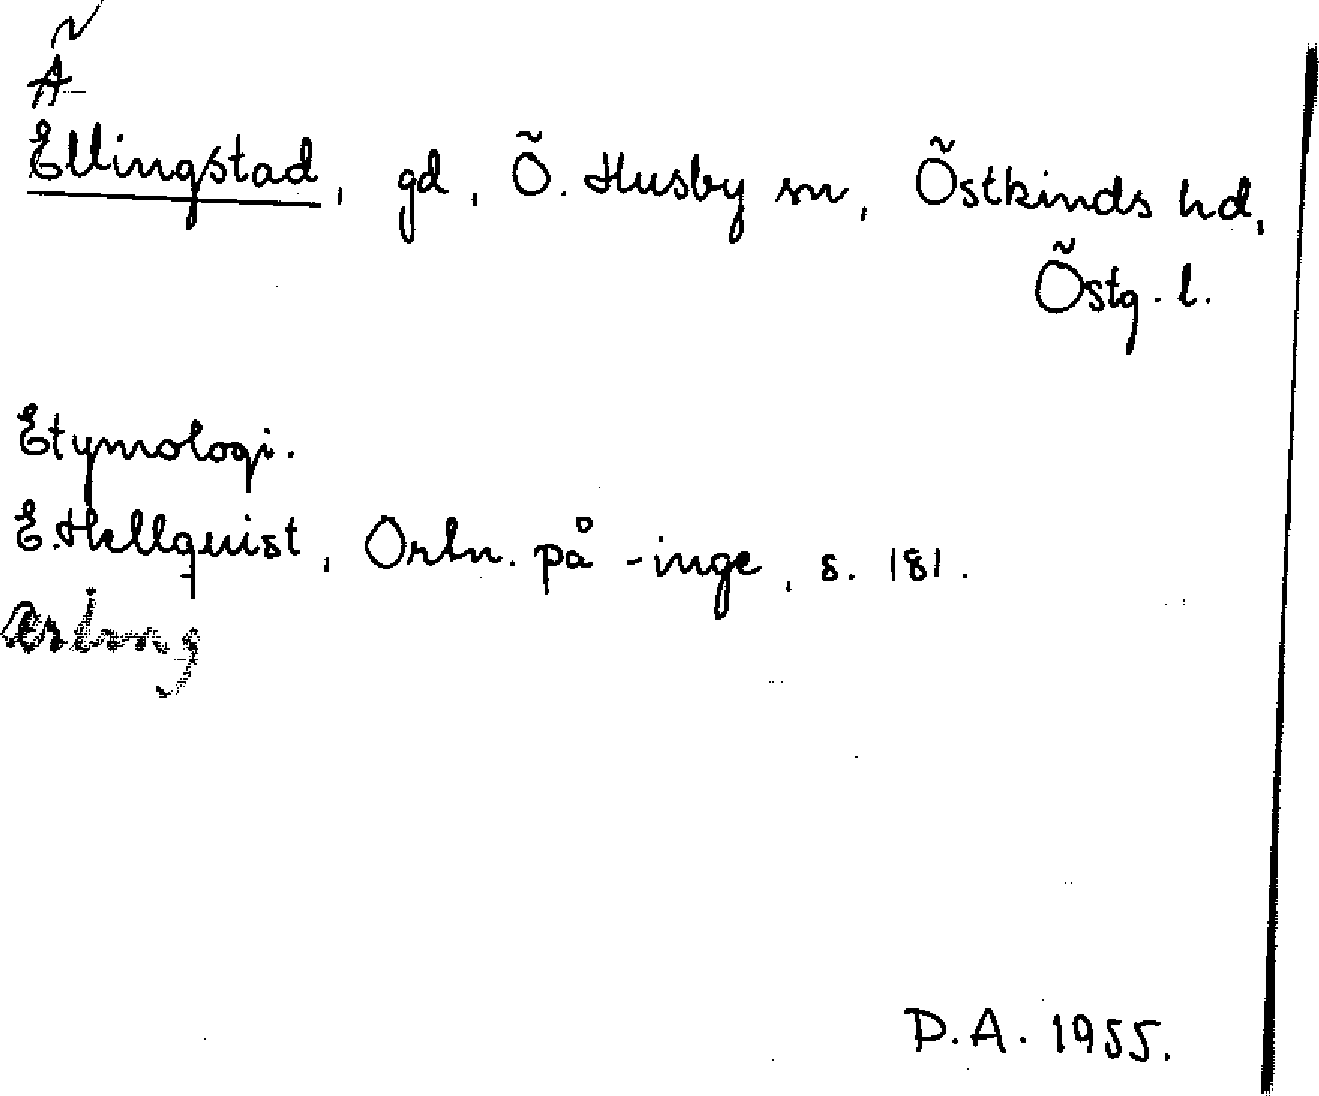 Ä
Ellingstad, gd, Ö. Husby sn, Östkinds hd,
Östg. l.
Etymologi.
E. Hellquist, Ortn. på -inge, s. 181.
D.A. 1955.